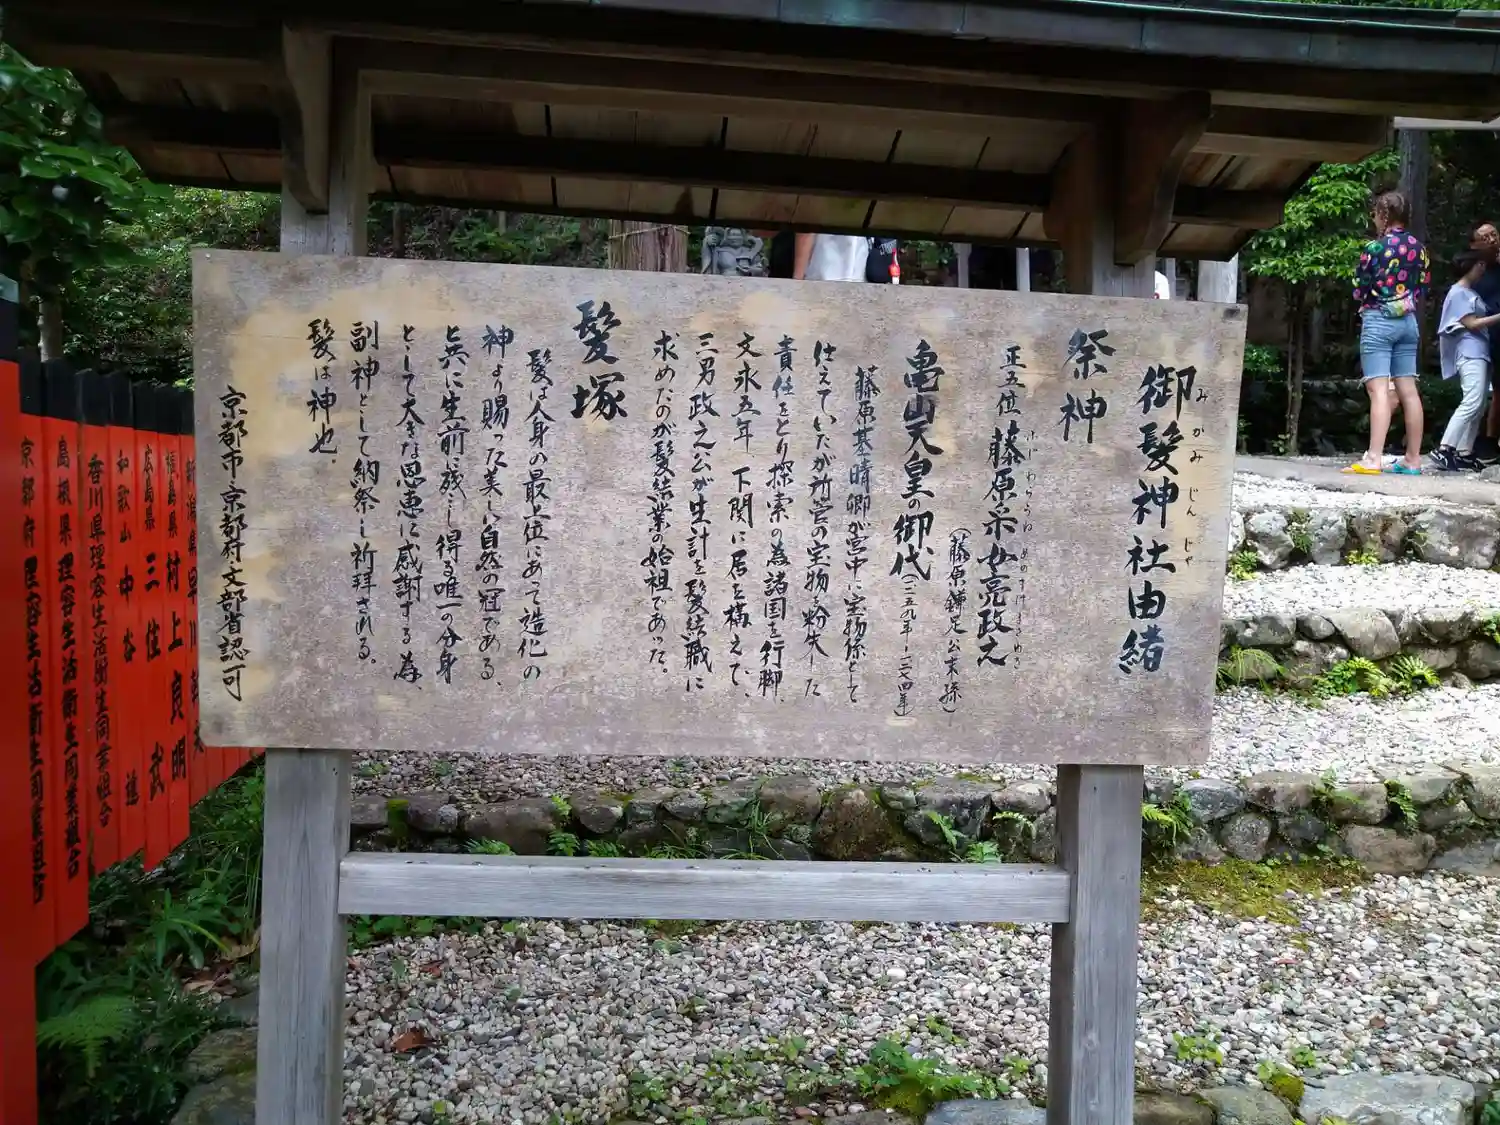 御髪神社由緒
みかみじんじゃ
祭神
正五位 藤原采女亮政之
ふじわらうねめのすけまさゆき
(藤原鎌足公末孫)
亀山天皇の御代(一二五九年ー一二七四年)
藤原基晴卿が宮中に宝物係として
仕えていたが所管の宝物を紛失した
責任をとり探索の為諸国を行脚、
文永五年 下関に居を構えて、
三男政之公が生計を髪結職に
求めたのが髪結業の始祖であった。
髪塚
髪は人身の最上位にあって造化の
神より賜った美しい自然の冠である、
と共に生前に残し得る唯一の分身
として大きな恩恵に感謝する為、
副神として納祭し祈拝される。
髪は神也.
京都市・京都府・文部省認可
福島県 村上良明
広島県 三住 武
和歌山 中谷
香川県理容生活衛生同業組合
島根県理容生活衛生同業組合
京都府理容生活衛生同業組合